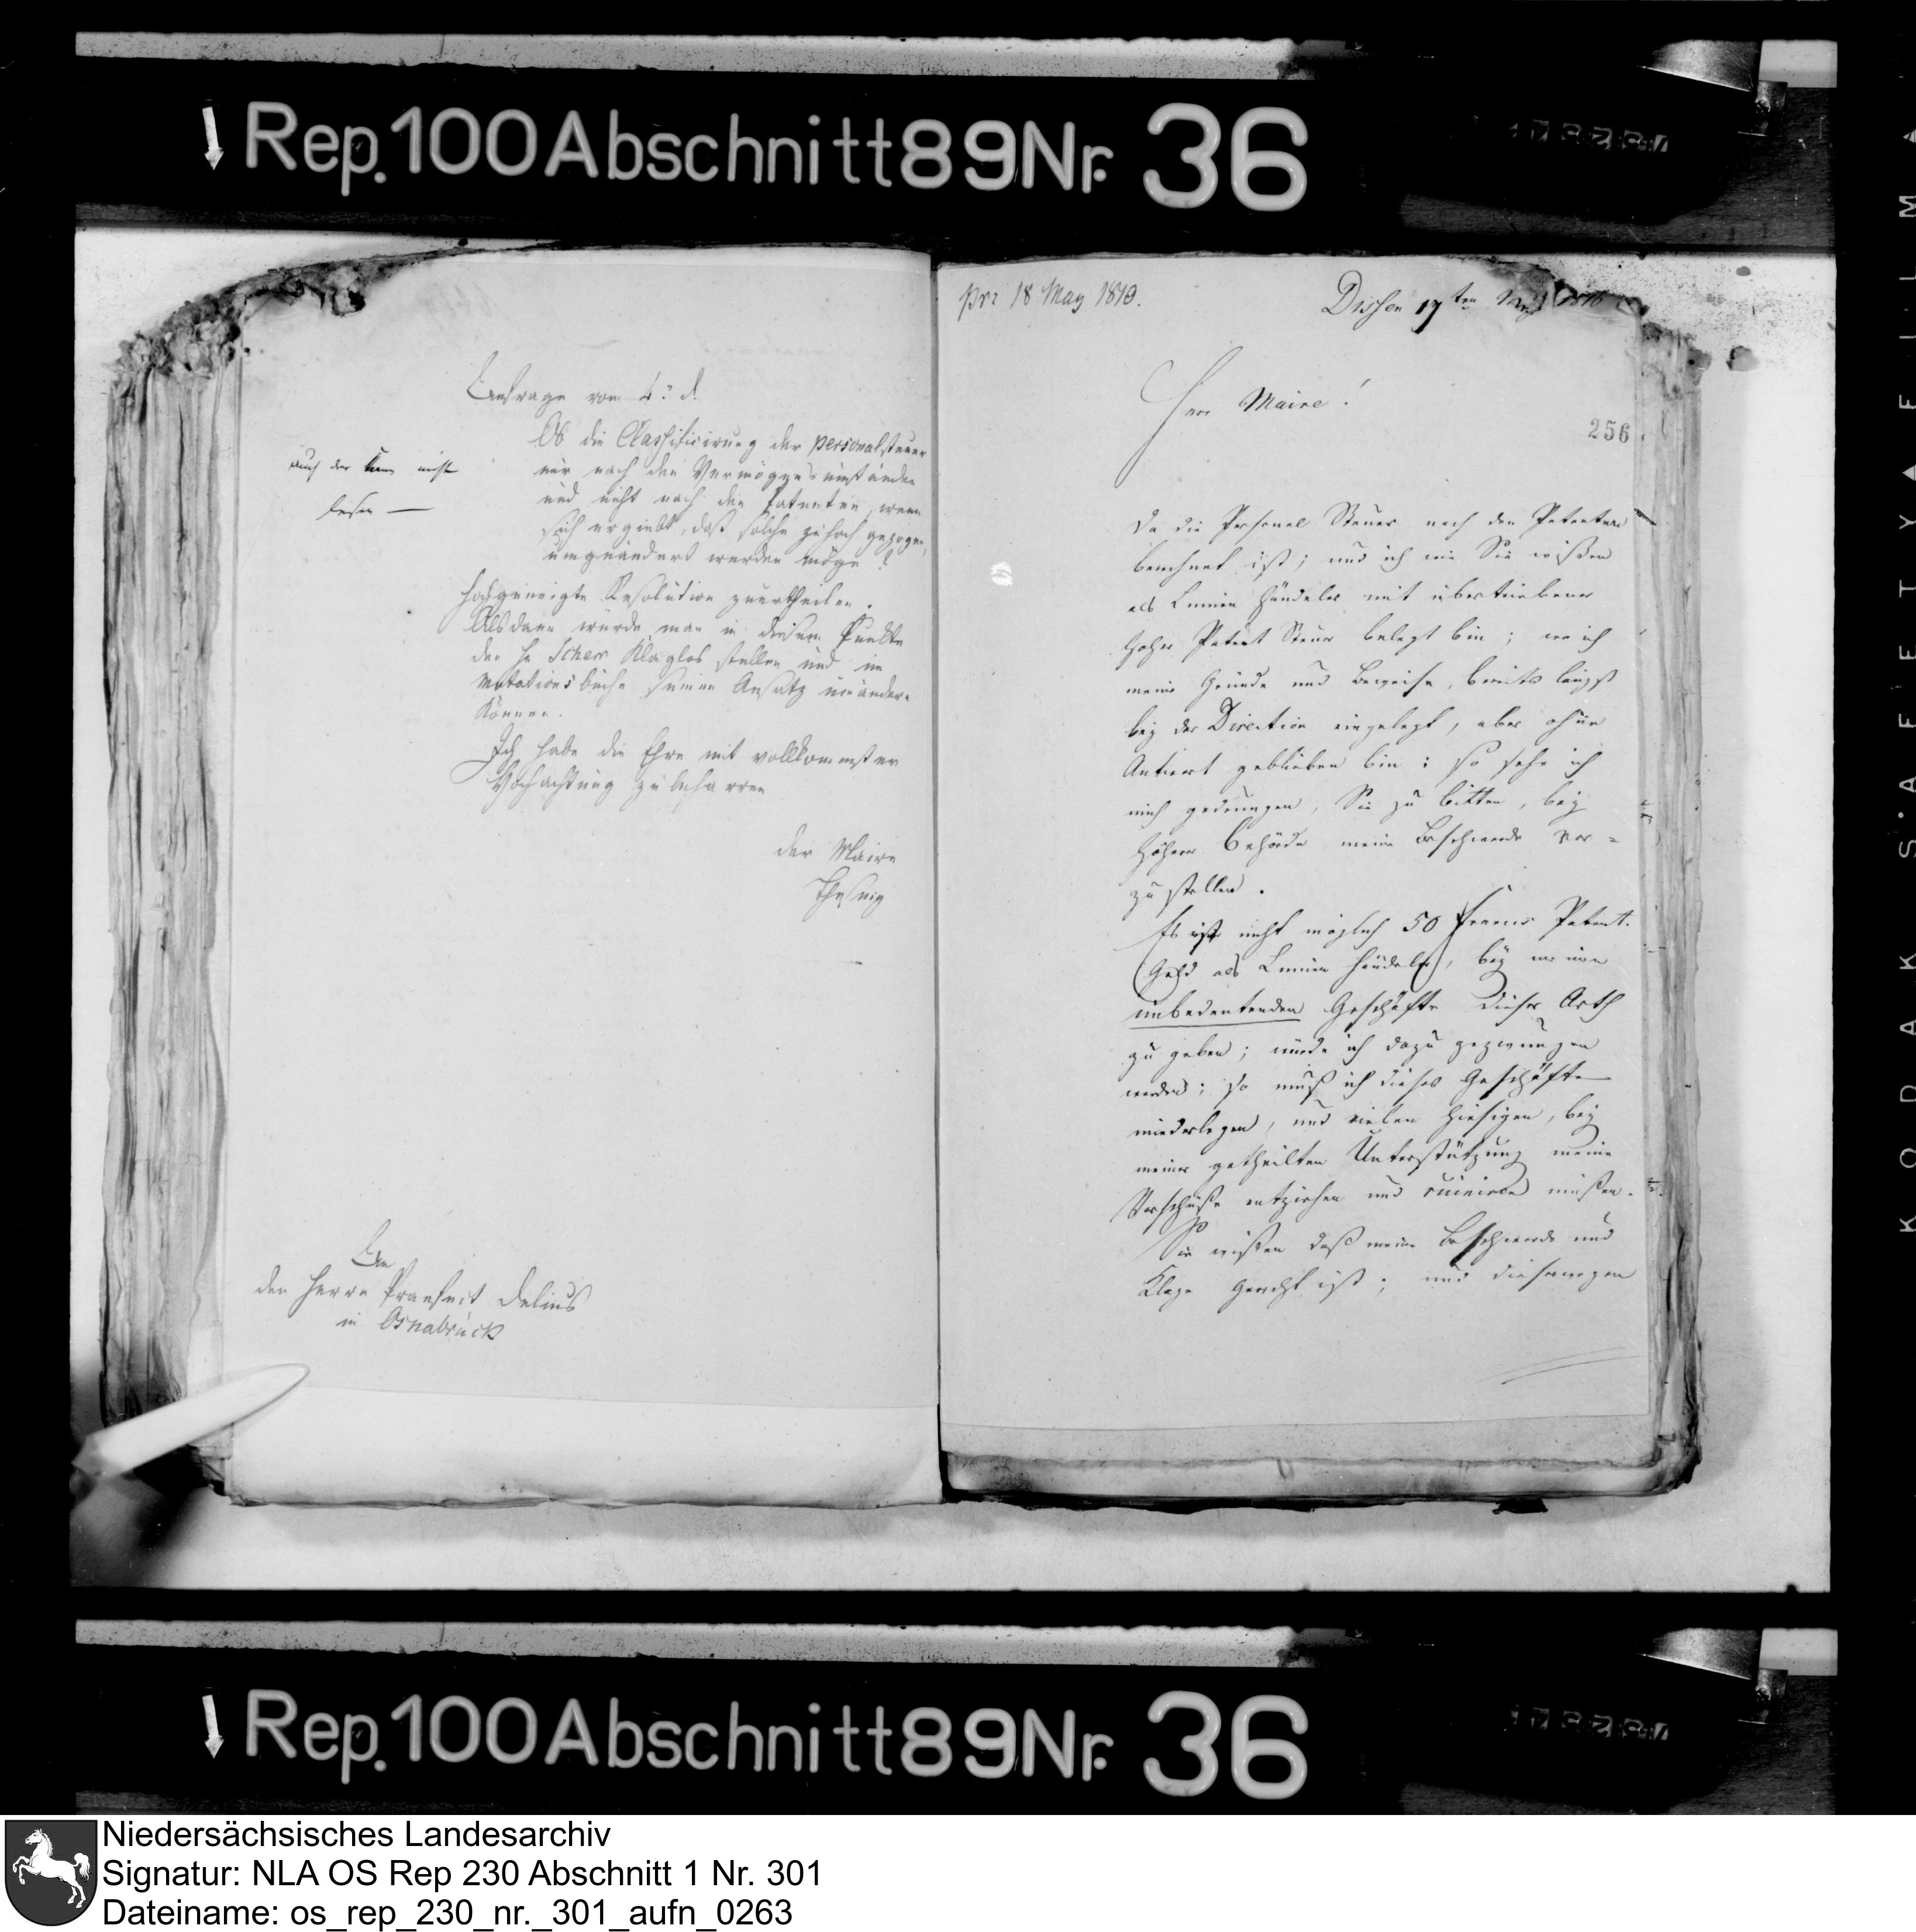 Rep. 100 Abschnitt 89 Nr. 36
Anfrage vom 4ten d.
Ob die Classificirung der personalsteuer
nur nach den Vermögensumständen
und nicht nach den Patenten, wenn
sich ergiebt, daß solche zu hoch gezogen,
umgeändert werden möge?
hochgeneigte Resolution zuertheilen.
Alsdann würde man in diesem Punkte
den H. Scherr Klaglos stellen und im
Mutationsbuche seinen Ansatz umändern
können.
Ich habe die Ehre mit vollkommenster
Hochachtung zu beharren
der Maire
An
den Herrn Praefect Delius
in Osnabrück
auch der kann nicht
lesen —
pr: 18 May 1810.
Dissen 17ten May 1810
256
Herr Maire!
Da die Personal Steuer nach den Patenten
berechnet ist; und ich wie Sie wißen
als Linnen Händeler mit übertriebener
hoher Patent Steuer belegt bin; wo ich
meine Gründe und Beweise, bereits längst
bey der Direction eingelegt, aber ohne
Antwort geblieben bin: so sehe ich
mich gedrungen, Sie zu bitten, bey
höherer Behörde meine Beschwerde vor-
zustellen.
Es ist nicht möglich 50 francs Patent.
Geld als Linnen Händeler, bey meinem
unbedeutenden Geschäfte dieser Arth
zu geben; würde ich dazu gezwungen
werden; so muß ich dieses Geschäfte
niederlegen, und vielen hiesigen, bey
meiner getheilten Unterstützung meine
Vorschüße entziehen und ruiniren müßen.
Sie wißen daß meine Beschwerde und
Klage Gerecht ist; und dieserwegen
KODAK SAFETY FILM
Rep. 100 Abschnitt 89 Nr. 36
Niedersächsisches Landesarchiv
Signatur: NLA OS Rep 230 Abschnitt 1 Nr. 301
Dateiname: os_rep_230_nr._301_aufn_0263